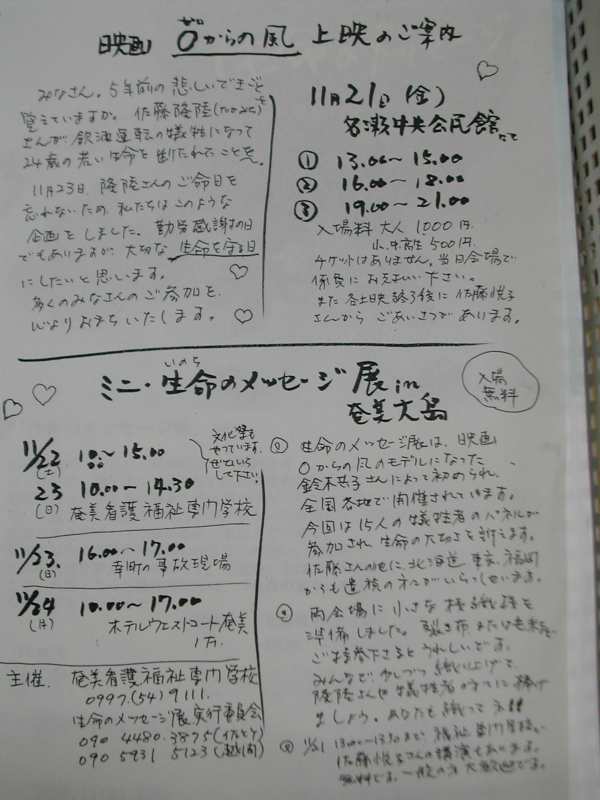 映画 ゼロからの風 上映のご案内
みなさん。5年前の悲しいできごとを
覚えていますか。佐藤隆陸(たかみち)
さんが飲酒運転の犠牲になって
24歳の若い命を断たれたことを。
11月23日、隆陸さんのご命日を
忘れないため、私たちはこのような
企画をしました。勤労感謝の日
でもありますが、大切な生命を守る日
にしたいと思います。
多くのみなさんのご参加を、
心よりお待ちいたします。
11月21日(金)
名瀬中央公民館にて
① 13.00〜15.00
② 16.00〜18.00
③ 19.00〜21.00
入場料 大人 1000円
小・中・高生 500円
チケットはありません。当日会場で
係員にお支払い下さい。
また各上映終了後に佐藤悦子
さんからごあいさつがあります。
いのち
ミニ・生命のメッセージ展 in
奄美大島
入場
無料
11/22 10.00〜15.00
(土)
文化祭も
やっています。
ぜひいらし
て下さい。
23 10.00〜14.30
(日) 奄美看護福祉専門学校
11/23 16.00〜17.00
(日) 幸町の事故現場
11/24 10.00〜17.00
(月) ホテルウエストコート奄美
主催. 奄美看護福祉専門学校
0997.(54)9111.
生命のメッセージ展実行委員会
090 4480.3875(佐とう)
090 5931 5123(越間)
生命のメッセージ展は、映画
0からの風のモデルになった
鈴木共子さんによって初められ、
全国各地で開催されています。
今回は15人の犠牲者のパネルが
参加され、生命の大切さを訴えます。
佐藤さんの他に、北海道、東京、福岡
からも遺族の方がいらっしゃいます。
両会場に小さな機織機を
準備しました。裂き布または毛糸を
ご持参下さるとうれしいです。
みんなで少しづつ織り上げて、
隆陸さんや犠牲者の方に捧げ
ましょう。あなたも織ってネ!!
11/21 13.00〜 まで 福祉専門学校で
佐藤悦子さんの講演もあります。
無料です。一般の方大歓迎です。